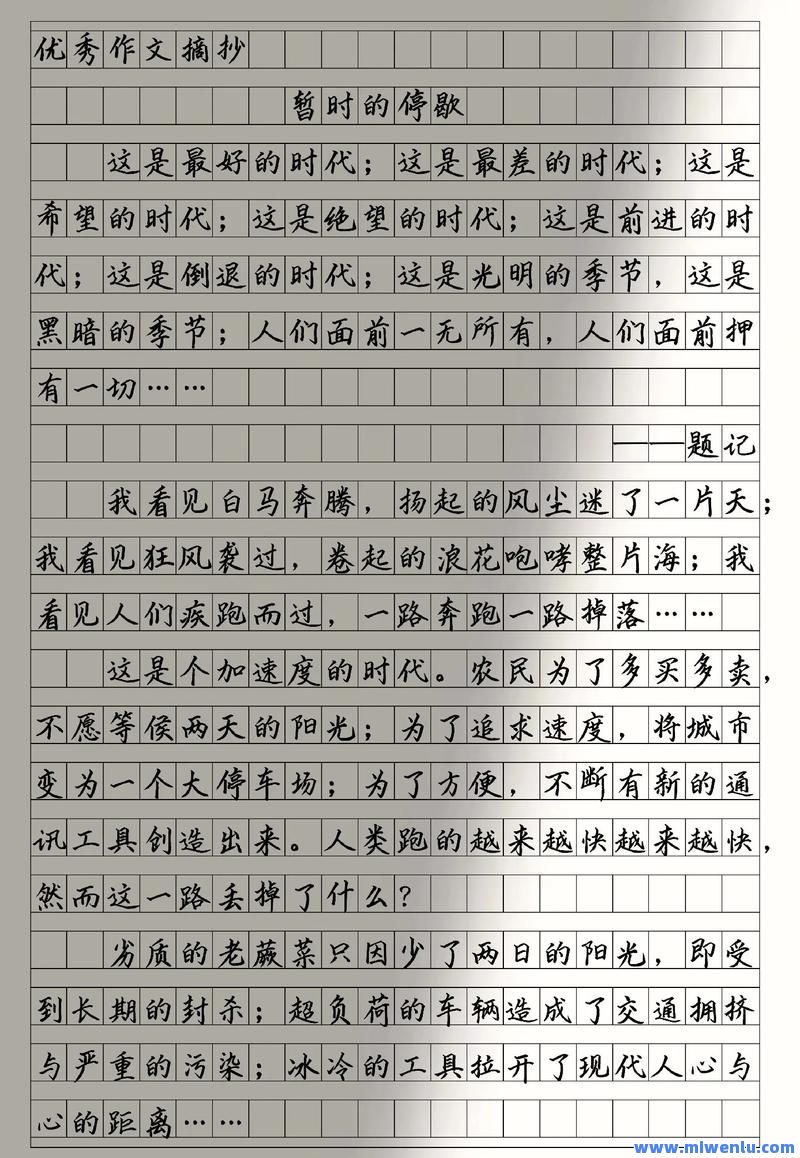 优秀作文摘抄
暂时的停歇
这是最好的时代；这是最差的时代；这是
希望的时代；这是绝望的时代；这是前进的时
代；这是倒退的时代；这是光明的季节，这是
黑暗的季节；人们面前一无所有，人们面前押
有一切……
——题记
我看见白马奔腾，扬起的风尘迷了一片天；
我看见狂风袭过，卷起的浪花咆哮整片海；我
看见人们疾跑而过，一路奔跑一路掉落……
这是个加速度的时代。农民为了多买多卖，
不愿等侯两天的阳光；为了追求速度，将城市
变为一个大停车场；为了方便，不断有新的通
讯工具创造出来。人类跑的越来越快越来越快，
然而这一路丢掉了什么？
劣质的老蕨菜只因少了两日的阳光，即受
到长期的封杀；超负荷的车辆造成了交通拥挤
与严重的污染；冰冷的工具拉开了现代人心与
心的距离……
www.mlwenlu.com